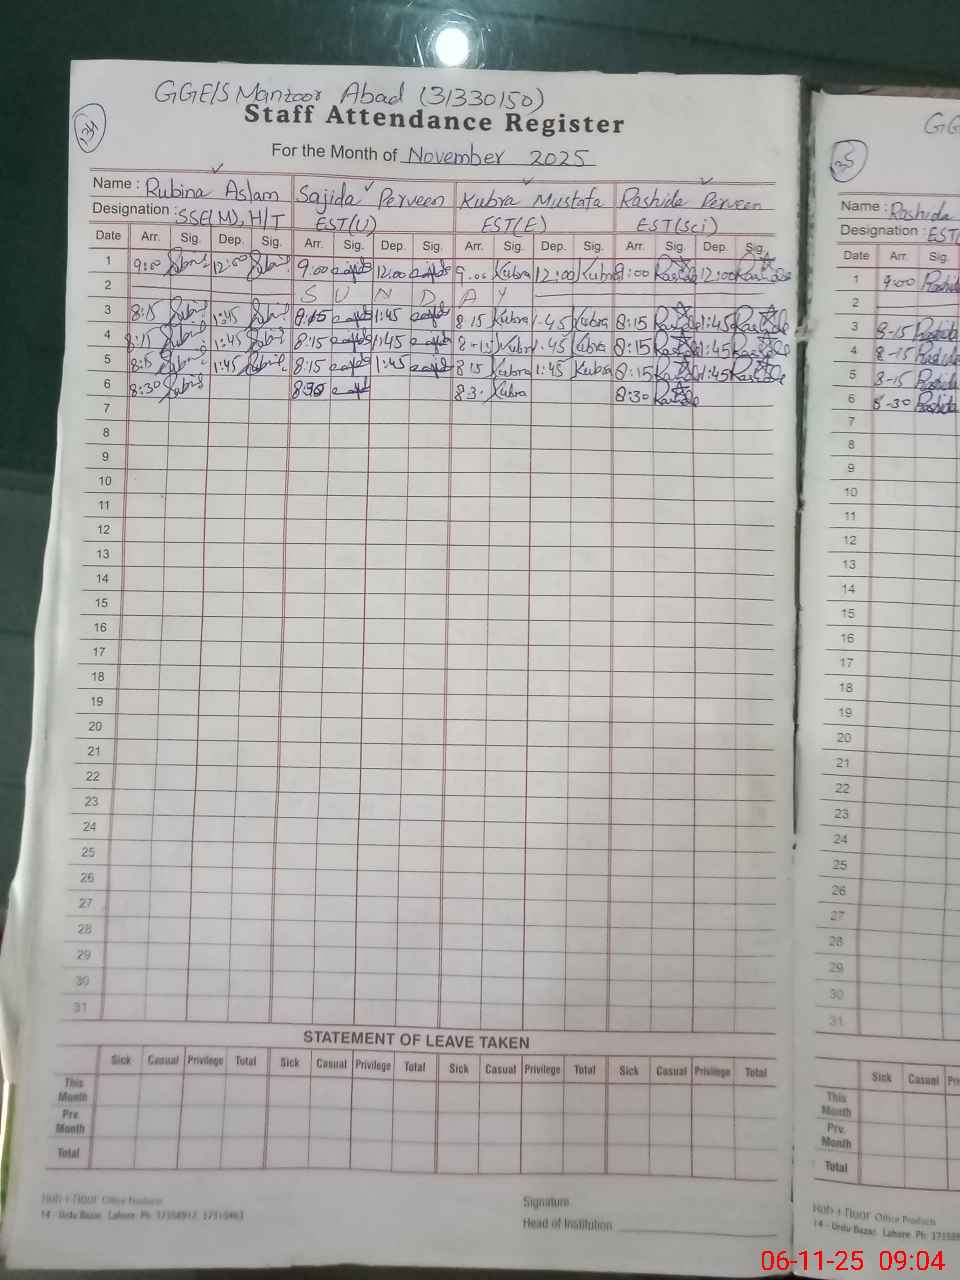 GGE/S Manzoor Abad (31330150)
134
Staff Attendance Register
For the Month of November 2025
Name : Rubina Aslam Sajida Perveen Kubra Mustafa Rashida Perveen
Designation : SSE(M), H/T EST(U) EST(E) EST(Sci)
Date Arr. Sig. Dep. Sig. Arr. Sig. Dep. Sig. Arr. Sig. Dep. Sig. Arr. Sig. Dep. Sig.
1 9:00 12:00 9.00 12.00 9.00 Kubra 12:00 Kubra 9:00 12:00
2 S U N D A Y
3 8:15 1:45 8:15 1:45 8.15 Kubra 1.45 Kubra 8:15 1:45
4 8:15 1:45 8:15 1:45 8-15 Kubra 1.45 Kubra 8:15 1:45
5 8:15 1:45 8:15 1:45 8 15 Kubra 1:45 Kubra 8:15 1:45
6 8:30 8:30 8.3. Kubra 8:30
7
8
9
10
11
12
13
14
15
16
17
18
19
20
21
22
23
24
25
26
27
28
29
30
31
STATEMENT OF LEAVE TAKEN
Sick Casual Privilege Total Sick Casual Privilege Total Sick Casual Privilege Total Sick Casual Privilege Total
This Month
Pre. Month
Total
Office Products
14 - Urdu Bazar, Lahore. Ph:
Signature
Head of Institution
GG
35
Name : Rashida
Designation : EST
Date Arr. Sig.
1 9:00 Rashida
2
3 8-15 Rashida
4 8-15 Rashida
5 8-15 Rashida
6 8-30 Rashida
7
8
9
10
11
12
13
14
15
16
17
18
19
20
21
22
23
24
25
26
27
28
29
30
31
Sick Casual
This Month
Pre. Month
Total
Office Products
14 - Urdu Bazar, Lahore. Ph:
06-11-25 09:04